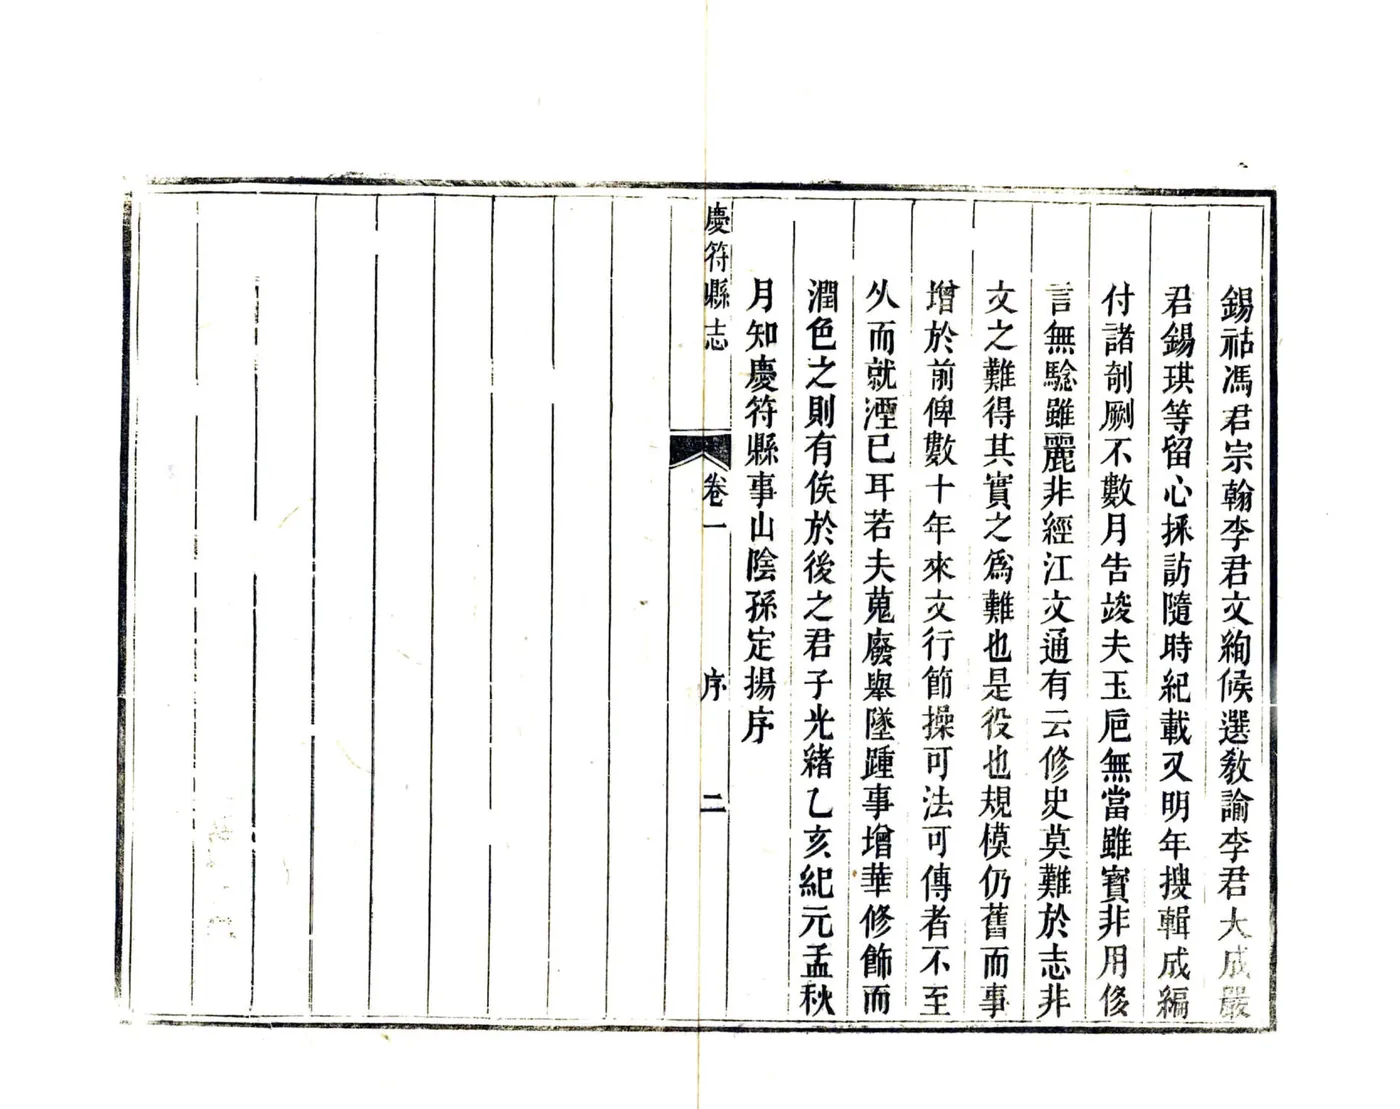 錫祜馮君宗翰李君文絢候選敎諭李君大成嚴
君錫琪等留心採訪隨時紀載又明年搜輯成編
付諸剞劂不數月告竣夫玉巵無當雖寳非用侈
言無騐雖麗非經江文通有云修史莫難於志非
文之難得其實之為難也是役也規模仍舊而事
增於前俾數十年來文行節操可法可傳者不至
乆而就湮已耳若夫蒐廢舉墜踵事增華修飾而
潤色之則有俟於後之君子光緒乙亥紀元孟秋
月知慶符縣事山陰孫定揚序
慶符縣志
卷一
序
二